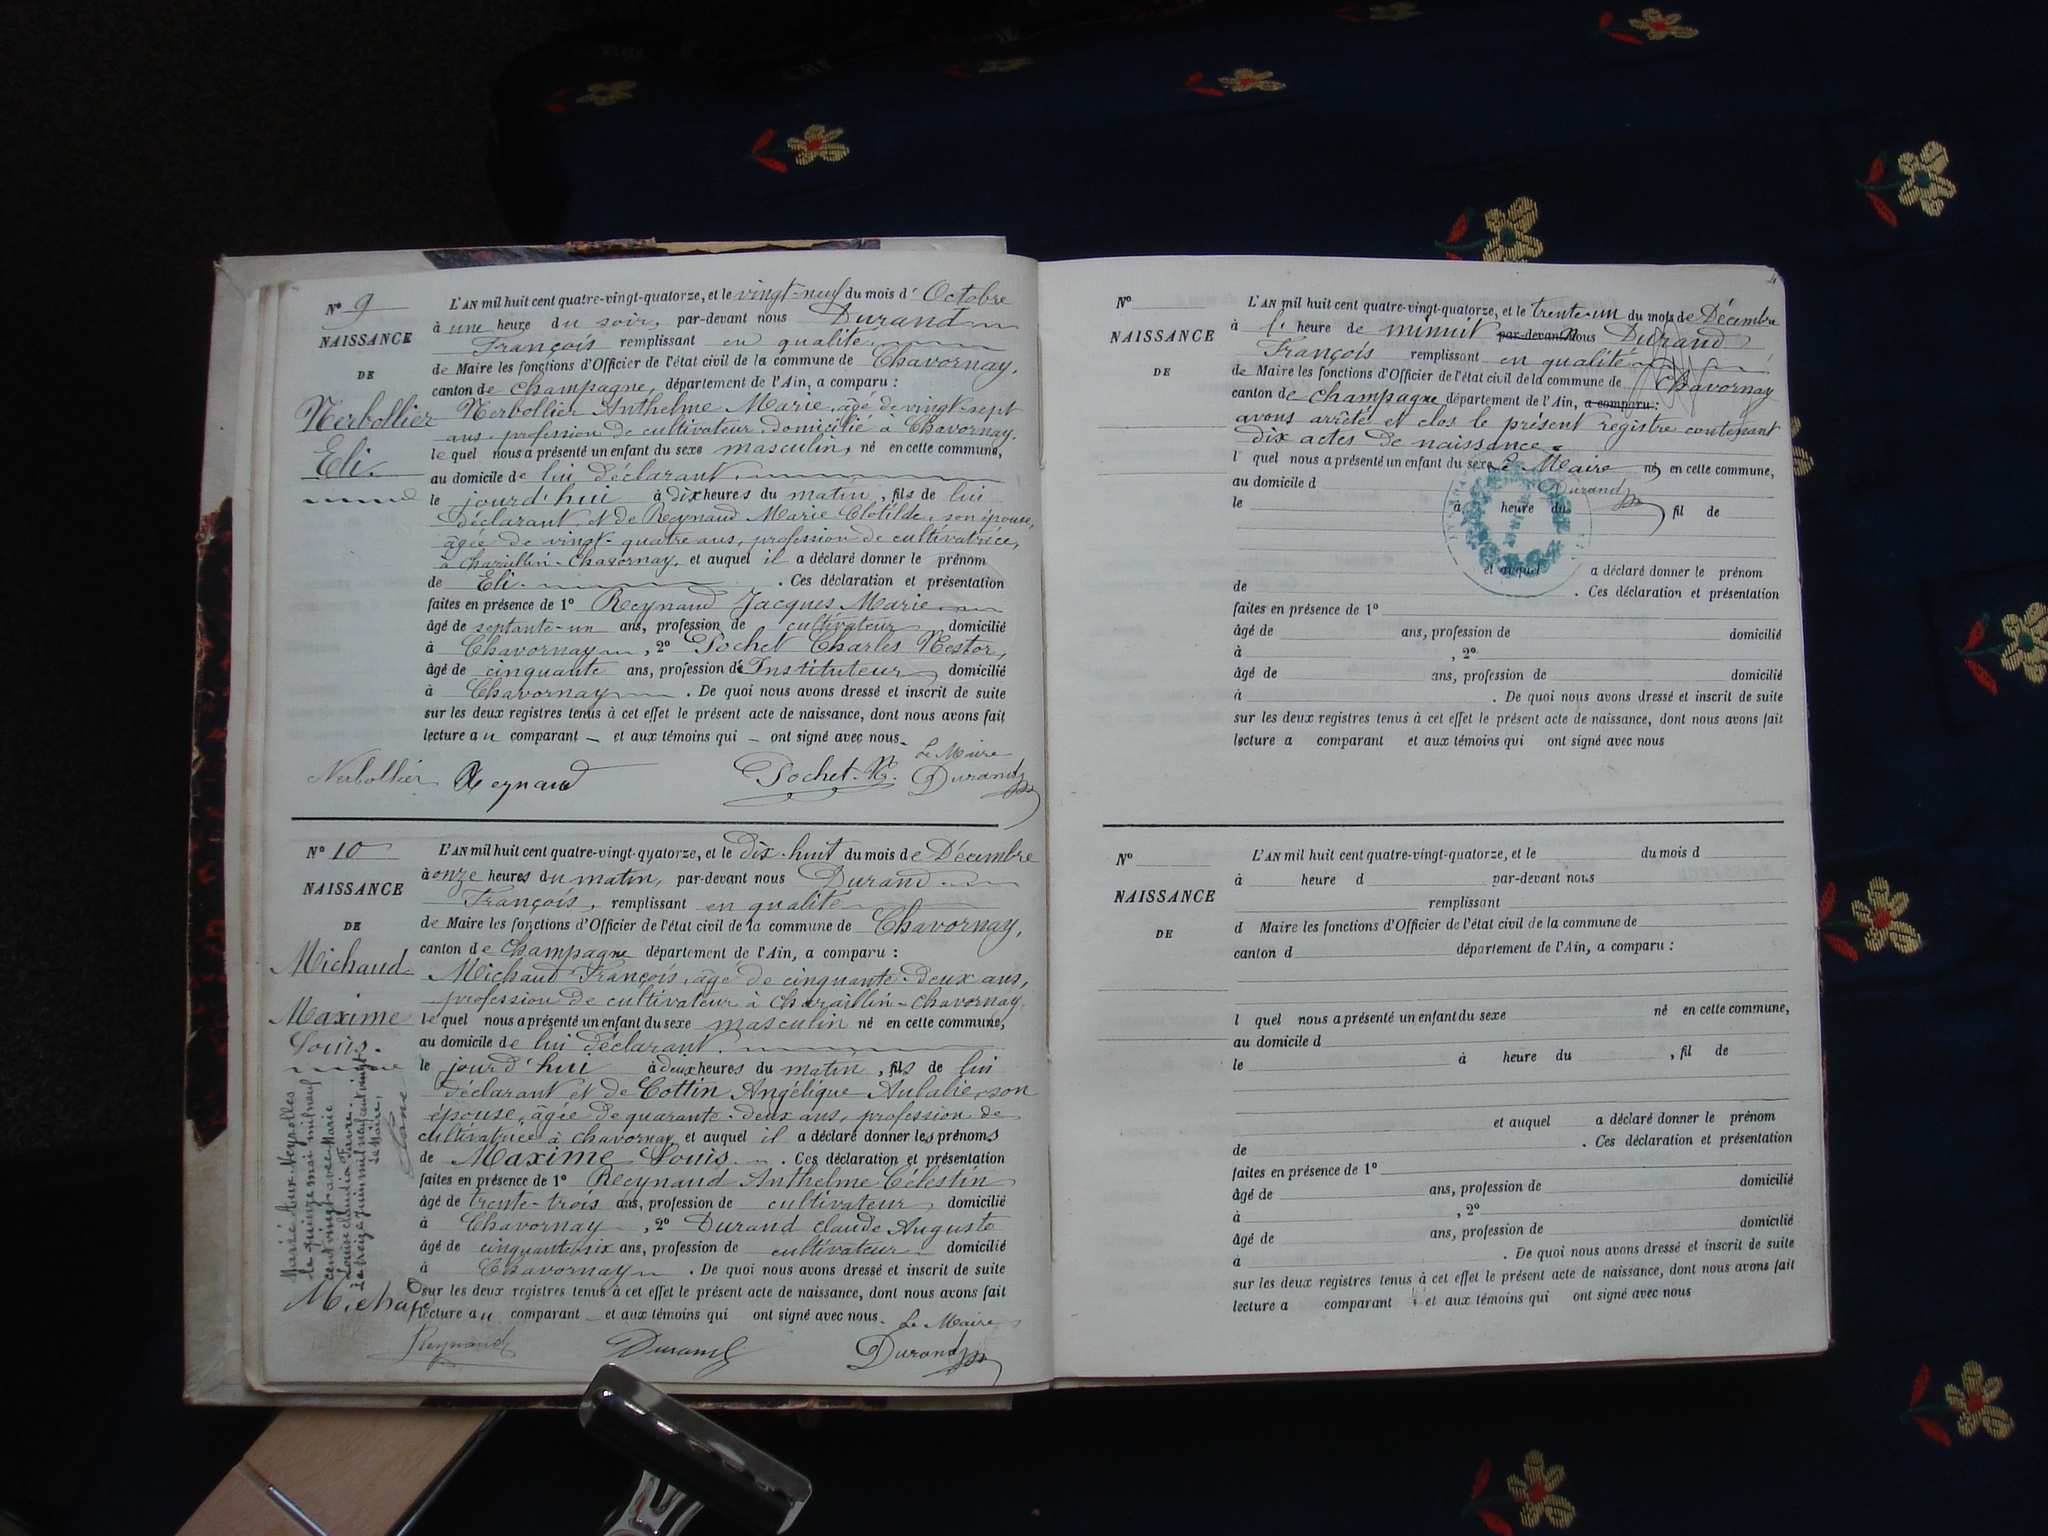 N° 9
NAISSANCE
DE
Nerbollier
Eli.
L'AN mil huit cent quatre-vingt-quatorze, et le vingt-neuf du mois d'Octobre
à une heure du soir, par-devant nous Durand
François remplissant en qualité
de Maire les fonctions d'Officier de l'état civil de la commune de Chavornay,
canton de Champagne, département de l'Ain, a comparu :
Nerbollier Anthelme Marie, âgé de vingt-sept
ans, profession de cultivateur domicilié à Chavornay.
le quel nous a présenté un enfant du sexe masculin, né en cette commune,
au domicile de lui déclarant.
le jourd'hui à dix heures du matin, fils de lui
déclarant, et de Reynaud Marie Clotilde, son épouse,
âgée de vingt-quatre ans, profession de cultivatrice,
à Charaillin-Chavornay, et auquel il a déclaré donner le prénom
de Eli. Ces déclaration et présentation
faites en présence de 1° Reynaud Jacques Marie
âgé de septante-un ans, profession de cultivateur domicilié
à Chavornay, 2° Pochet Charles Nestor,
âgé de cinquante ans, profession de Instituteur domicilié
à Chavornay. De quoi nous avons dressé et inscrit de suite
sur les deux registres tenus à cet effet le présent acte de naissance, dont nous avons fait
lecture au comparant – et aux témoins qui – ont signé avec nous.
Le Maire
Nerbollier Reynaud Pochet. N. Durand
N° 10
NAISSANCE
DE
Michaud
Maxime
Louis.
L'AN mil huit cent quatre-vingt-qyatorze, et le dix-huit du mois de Décembre
à onze heures du matin, par-devant nous Durand
François, remplissant en qualité
de Maire les fonctions d'Officier de l'état civil de la commune de Chavornay,
canton de Champagne département de l'Ain, a comparu :
Michaud François, âgé de cinquante-deux ans,
profession de cultivateur à Charaillin-Chavornay.
le quel nous a présenté un enfant du sexe masculin né en cette commune,
au domicile de lui déclarant.
le jourd'hui à deux heures du matin, fils de lui
déclarant et de Cottin Angélique Aulalie, son
épouse, âgée de quarante-deux ans, profession de
cultivatrice à Chavornay et auquel il a déclaré donner les prénoms
de Maxime Louis. Ces déclaration et présentation
faites en présence de 1° Reynaud Anthelme Célestin
âgé de trente-trois ans, profession de cultivateur, domicilié
à Chavornay, 2° Durand Claude Auguste
âgé de cinquante-six ans, profession de cultivateur domicilié
à Chavornay. De quoi nous avons dressé et inscrit de suite
sur les deux registres tenus à cet effet le présent acte de naissance, dont nous avons fait
lecture au comparant – et aux témoins qui ont signé avec nous.
Le Maire
Reynaud Durand Durand
Marié aux Neyrolles
le quinze mai mil neuf
cent vingt avec Marie
Louise Claudia Favre.
Le treize juin mil neuf cent vingt
Le Maire,
N°
NAISSANCE
DE
L'AN mil huit cent quatre-vingt-quatorze, et le trente-un du mois de Décembre
à l' heure de minuit par-devant Nous Durand
François remplissant en qualité
de Maire les fonctions d'Officier de l'état civil de la commune de Chavornay
canton de Champagne département de l'Ain, a comparu :
avons arrêté et clos le présent registre contenant
dix actes de naissance.
l quel nous a présenté un enfant du sexe Le Maire né en cette commune,
au domicile d Durand
le à heure du fil de
et auquel a déclaré donner le prénom
de . Ces déclaration et présentation
faites en présence de 1°
âgé de ans, profession de domicilié
à , 2°
âgé de ans, profession de domicilié
à . De quoi nous avons dressé et inscrit de suite
sur les deux registres tenus à cet effet le présent acte de naissance, dont nous avons fait
lecture a comparant et aux témoins qui ont signé avec nous
N°
NAISSANCE
DE
L'AN mil huit cent quatre-vingt-quatorze, et le du mois d
à heure d par-devant nous
remplissant
d Maire les fonctions d'Officier de l'état civil de la commune de
canton d département de l'Ain, a comparu :
l quel nous a présenté un enfant du sexe né en cette commune,
au domicile d
le à heure du , fil de
et auquel a déclaré donner le prénom
de . Ces déclaration et présentation
faites en présence de 1°
âgé de ans, profession de domicilié
à , 2°
âgé de ans, profession de domicilié
à . De quoi nous avons dressé et inscrit de suite
sur les deux registres tenus à cet effet le présent acte de naissance, dont nous avons fait
lecture a comparant et aux témoins qui ont signé avec nous